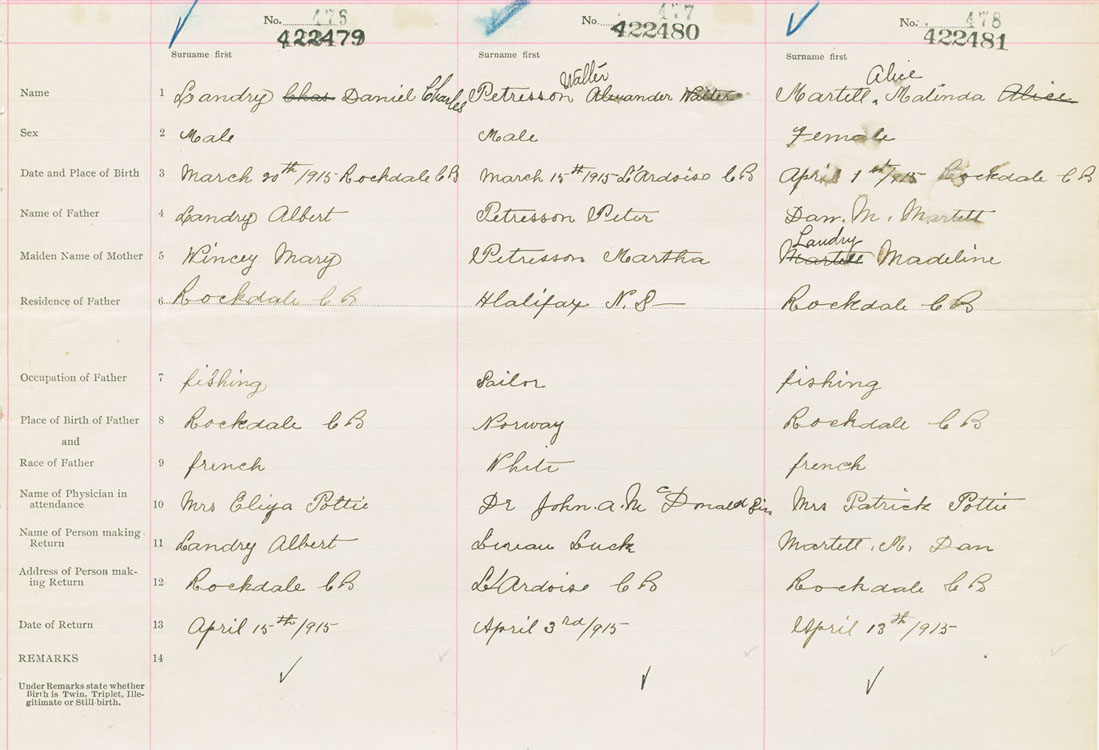 No. 476 No. 477 No. 478
422479 422480 422481
Surname first Surname first Surname first
Walter Alice
Name 1 Landry Chas Daniel Charles Petresson Alexander Walter Martell, Malinda Alice
Sex 2 Male Male Female
Date and Place of Birth 3 March 20th/1915 Rockdale C B March 15th/1915 L'Ardoise C B April 1st/1915 Rockdale C B
Name of Father 4 Landry Albert Petresson Peter Dan. M. Martell
Landry
Maiden Name of Mother 5 Wincey Mary Petresson Martha Martell Madeline
Residence of Father 6 Rockdale C B Halifax N. S Rockdale C B
Occupation of Father 7 fishing Sailor fishing
Place of Birth of Father 8 Rockdale C B Norway Rockdale C B
and
Race of Father 9 french White french
Name of Physician in
attendance 10 Mrs Eliza Pottie Dr John. A. McDonald Mrs Patrick Pottie
Name of Person making
Return 11 Landry Albert Luck Martell. M. Dan
Address of Person mak-
ing Return 12 Rockdale C B L'Ardoise C B Rockdale C B
Date of Return 13 April 15th/1915 April 3rd/1915 April 13th/1915
REMARKS 14
Under Remarks state whether
Birth is Twin, Triplet, Ille-
gitimate or Still-birth.